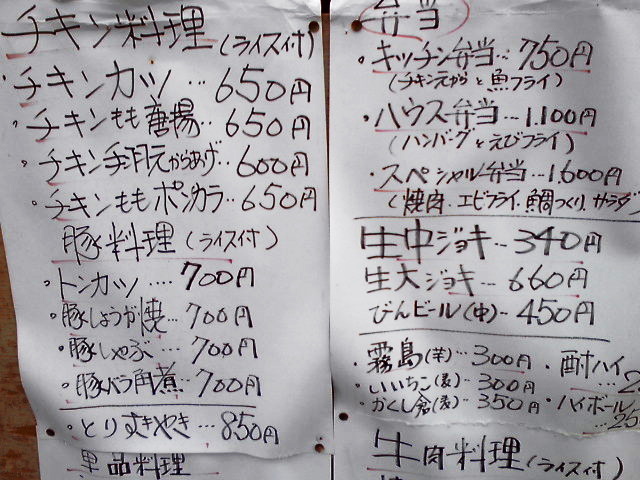 チキン料理(ライス付)
・チキンカツ…650円
・チキンもも唐揚…650円
・チキン手羽元からあげ…600円
・チキンももポンカラ…650円
豚料理(ライス付)
・トンカツ….700円
・豚しょうが焼…700円
・豚しゃぶ….700円
・豚バラ角煮…700円
・とりすきやき…850円
単品料理
弁当
・キッチン弁当…750円
(チキン元からと魚フライ)
・ハウス弁当…1.100円
(ハンバーグとえびフライ)
・スペシャル弁当…1.600円
(焼肉.エビフライ.鯛つくり.サラダ
生中ジョキ…340円
生大ジョキ…660円
びんビール(中)…450円
・霧島(芋)…300円
・いいちこ(麦)…300円
・かくし倉(麦)…350円
・酎ハイ
・ハイボール
牛肉料理(ライス付)